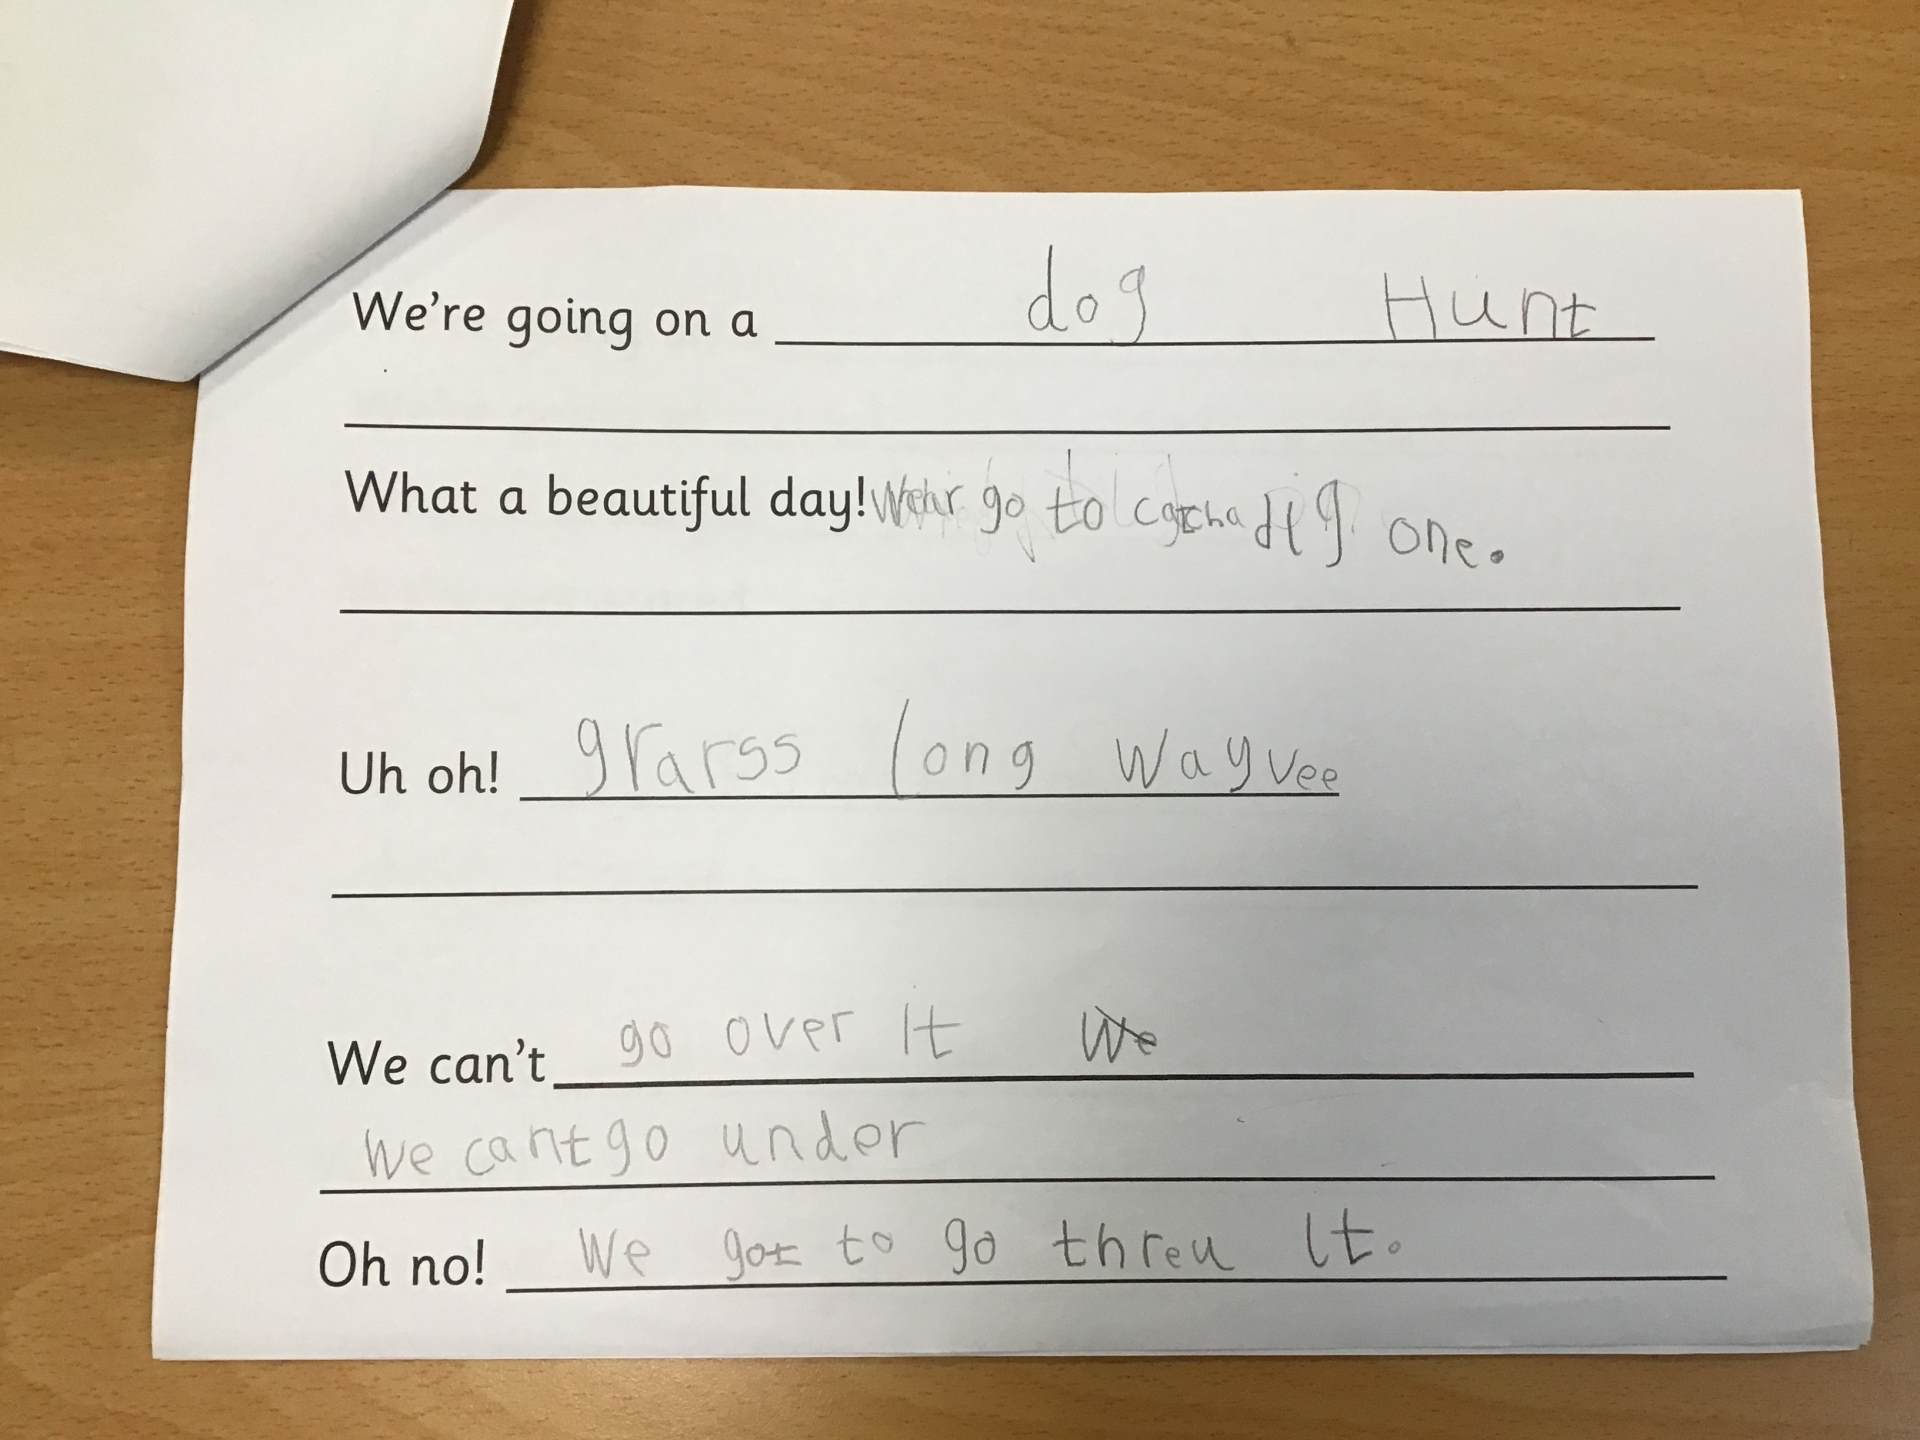 We're going on a dog Hunt
What a beautiful day! go to catcha one.
Uh oh! grarss long wayvee
We can't go over It We
We cant go under
Oh no! We got to go threu It.